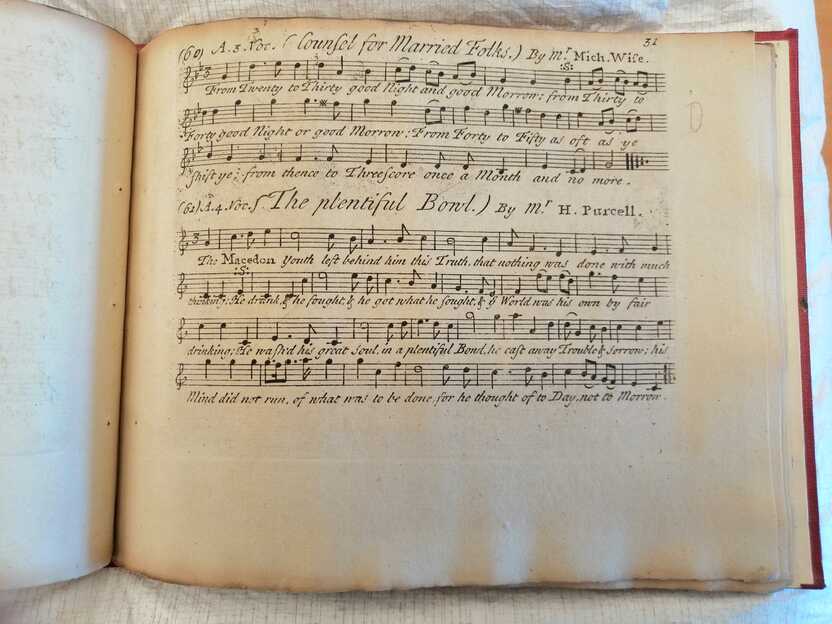 31
(60) A. 3. Voc. (Counsel for Married Folks.) By Mr Mich. Wise.
:S:
From Twenty to Thirty good Night and good Morrow: from Thirty to
Forty good Night or good Morrow: From Forty to Fifty as oft as ye
shift ye; from thence to Threescore once a Month and no more.
(61) A. 4. Voc. (The plentiful Bowl.) By Mr H. Purcell.
The Macedon Youth left behind him this Truth, that nothing was done with much
:S:
thinking; He drank, & he fought, & he got what he sought, & ye World was his own by fair
drinking; He wash'd his great Soul, in a plentiful Bowl, he cast away Trouble & Sorrow; his
Mind did not run, of what was to be done, for he thought of to Day, not to Morrow.